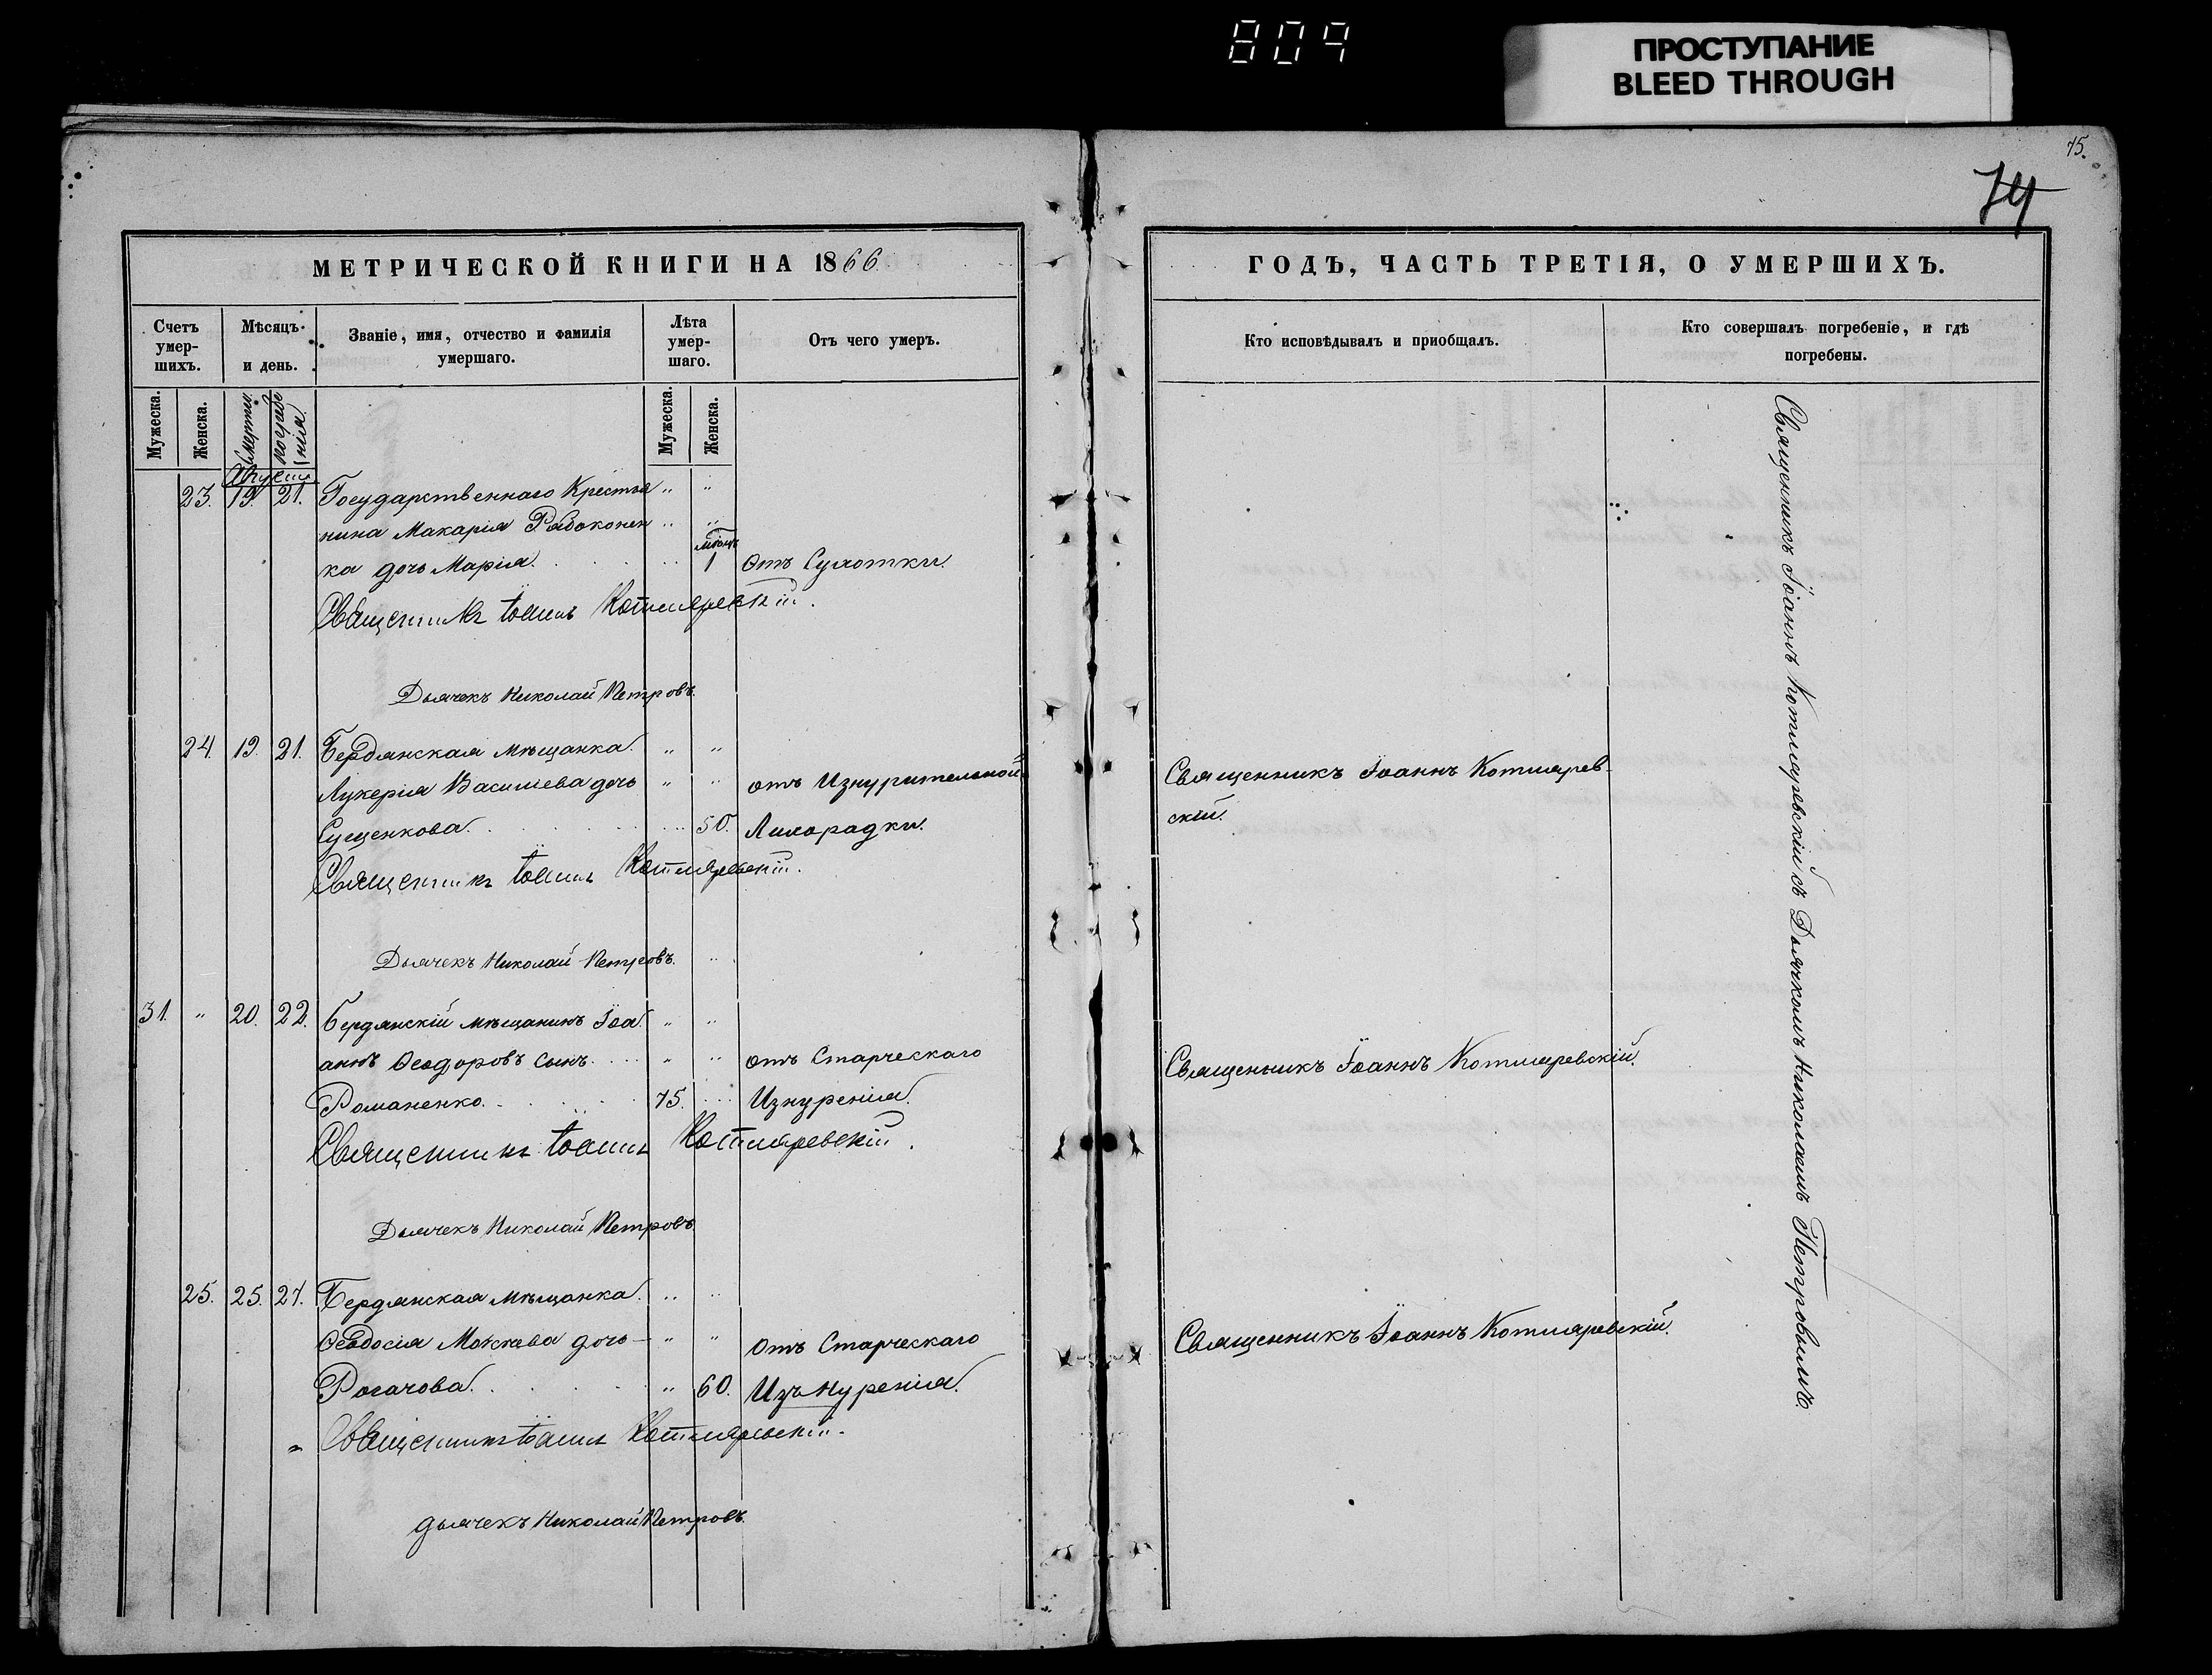 809
ПРОСТУПАНИЕ
BLEED THROUGH
75.
74
МЕТРИЧЕСКОЙ КНИГИ НА 1866
Счетъ умер-шихъ.
Мѣсяцъ и день.
Званіе, имя, отчество и фамилія умершаго.
Лѣта умер-шаго.
Отъ чего умеръ.
Мужеска.
Женска.
Смерти.
погребе
нія.
Мужеска.
Женска.
Августъ
23. 19. 21. Государственнаго Крестья " "
нина Макарія Рабоконен " "
мѣсяц
ка дочь Марія. 1 отъ Сухотки.
Священникъ Іоаннъ Котляревскій.
Дьячекъ Николай Петровъ.
24. 19. 21. Бердянская мѣщанка. " "
Лукерія Васильева дочь " " отъ Изнурительной
Сущенкова. 50. Лихорадки.
Священникъ Іоаннъ Котляревскій.
Дьячекъ Николай Петровъ. "
31. " 20. 22. Бердянскій мѣщанинъ Іоа " "
ннъ Ѳеодоровъ сынъ. " " отъ Старческаго
Романенко. 75. Изнуренія.
Священникъ Іоаннъ Котляревскій.
Дьячекъ Николай Петровъ.
25. 25. 27. Бердянская мѣщанка. " "
Ѳеодосія Мокіева дочь – " " отъ Старческаго
Рогачова. " 60. Изънуренія.
" Священникъ Іоаннъ Котляревскій.
дьячекъ Николай Петровъ.
ГОДЪ, ЧАСТЬ ТРЕТІЯ, О УМЕРШИХЪ.
Кто исповѣдывалъ и приобщалъ.
Кто совершалъ погребеніе, и гдѣ
погребены.
Священникъ Іоаннъ Котлярев-
скій.
Священникъ Іоаннъ Котляревскій.
Священникъ Іоаннъ Котляревскій.
Священникъ Іоаннъ Котляревскій съ Дьячкомъ Николаемъ Петровымъ.